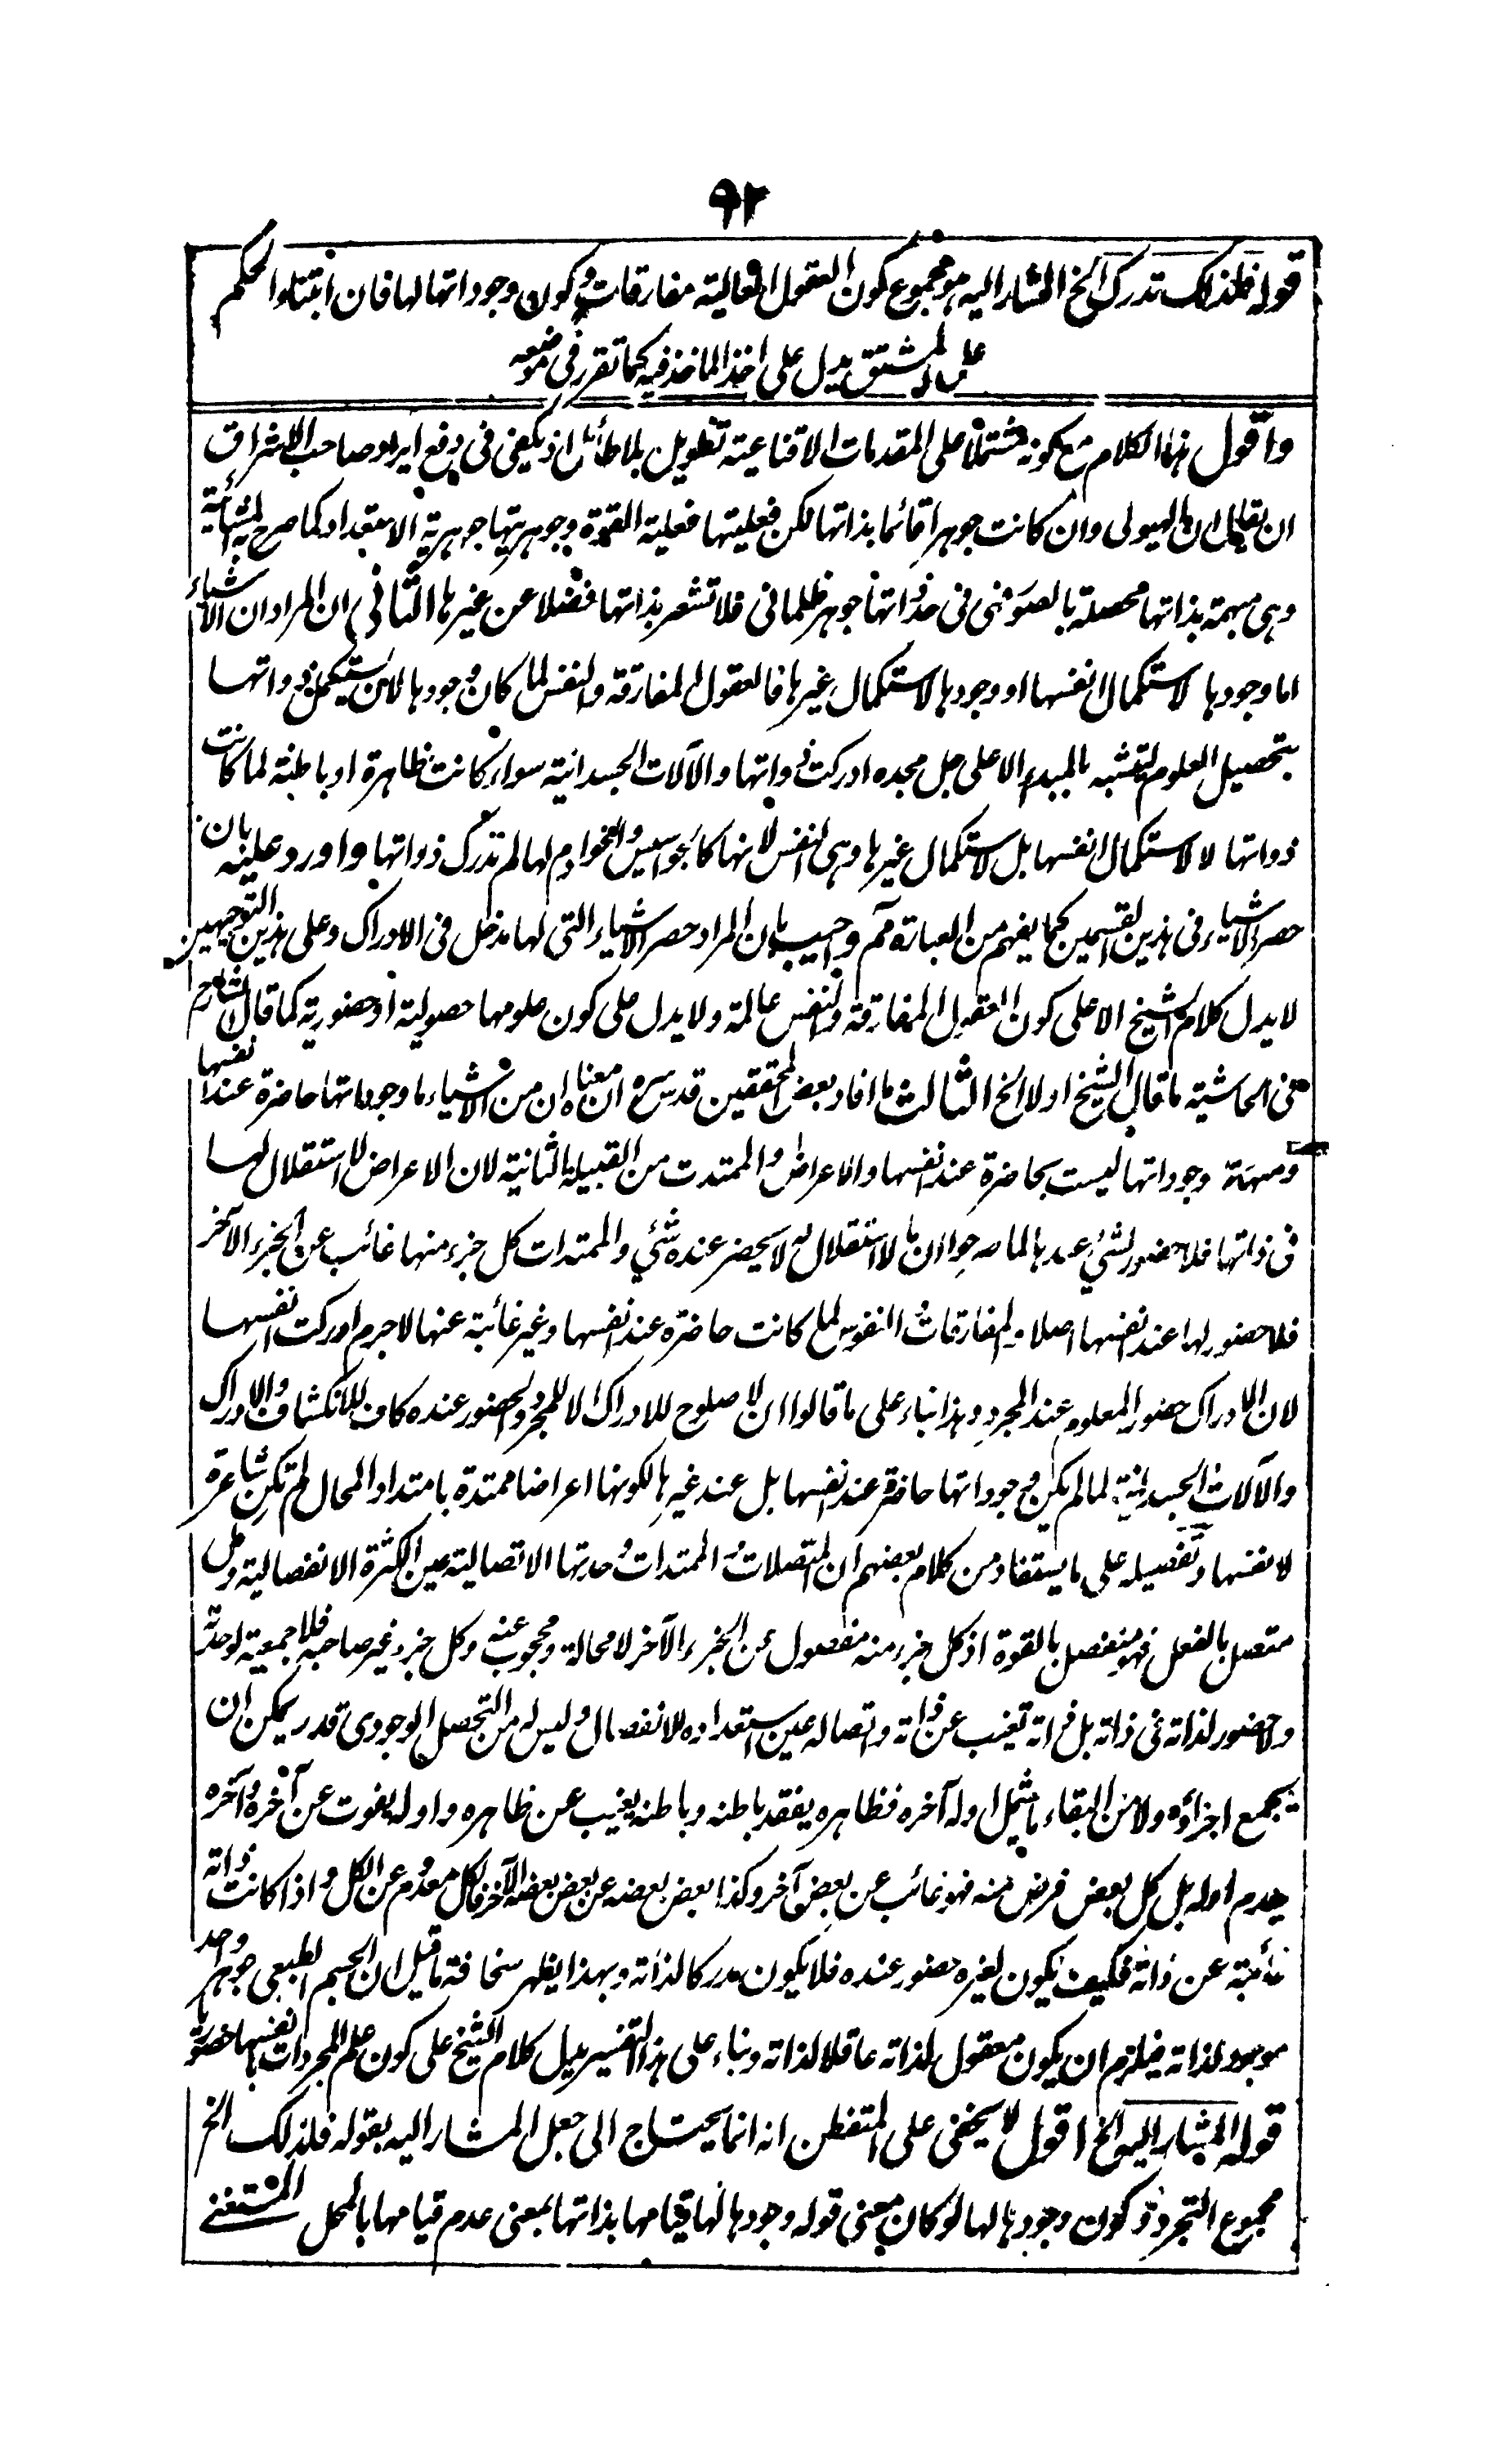 ٩٢
قوله فلذلك تدرك الخ المشار اليه هو مجموع كون العقول الفعالية مفارقات وكون وجوداتها لها فان ابتناء الحكم
على المشتق يدل على اخذ الماخذ فيه كما تقرر فى موضعه
واقول هذا الكلام مع كونه مشتملا على المقدمات الاقناعية تطويل بلا طائل اذ يكفى فى دفع ايراد صاحب الاشراق
ان يقال ان الهيولى وان كانت جوهرا قائما بذاتها لكن فعليتها فعلية القوة وجوهريتها جوهرية الاستعداد كما صرح به المشائية
وهى مبهمة بذاتها محصلة بالصور فهى فى حد ذاتها جوهر ظلمانى فلا تشعر بذاتها فضلا عن غيرها الثانى ان المراد ان الاشياء
اما وجودها لاستكمال انفسها او وجودها لاستكمال غيرها فالعقول المفارقة والنفس لما كان وجودها لان يستكمل ذواتها
بتحصيل العلوم والتشبه بالمبدء الاعلى جل مجده ادركت ذواتها والآلات الجسدانية سواء كانت ظاهرة او باطنة لما كانت
ذواتها لا لاستكمال انفسها بل لاستكمال غيرها وهى النفس لانها كالجواسيس والخوادم لها لم تدرك ذواتها واورد عليه بان
حصر الاشياء فى هذين القسمين كما يفهم من العبارة مم واجيب بان المراد حصر الاشياء التى لها مدخل فى الادراك وعلى هذين التوجيهين
لا يدل كلام الشيخ الا على كون العقول المفارقة والنفس عالمة ولا يدل على كون علومها حصولية او حضورية كما قال الشارح
فى الحاشية ما قال الشيخ اولا الخ الثالث ما افاد بعض المحققين قدس سره ان معناه ان من الاشياء ما وجوداتها حاضرة عند انفسها
ومنها وجوداتها ليست بحاضرة عند انفسها والاعراض والممتدات من القبيلة الثانية لان الاعراض لا استقلال لها
فى ذاتها فلا حضور لشئ عندها لما صرحوا ان ما لا استقلال له لا يحضر عنده شئ والممتدات كل جزء منها غائب عن الجزء الآخر
فلا حضور لها عند انفسها اصلا والمفارقات والنفوس لما كانت حاضرة عند انفسها وغير غائبة عنها لا جرم ادركت انفسها
لان الادراك حضور المعلوم عند المجرد وهذا بناء على ما قالوا ان لا صلوح للادراك الا للمجرد والحضور عنده كاف للانكشاف والادراك
والآلات الجسدانية لما لم يكن وجوداتها حاضرة عند انفسها بل عند غيرها لكونها اعراضا ممتدة بامتداد المحال لم تكن شاعرة
لانفسها وتفصيله على ما يستفاد من كلام بعضهم ان المتصلات والممتدات وحدتها الاتصالية عين الكثرة الانفصالية وكل
متصل بالفعل فهو منفصل بالقوة اذ كل جزء منه مفصول عن الجزء الآخر لا محالة ومحجوب عنه وكل جزء غير صاحبه فلا جمعية لوحدته
ولا حضور لذاته فى ذاته بل ذاته تغيب عن ذاته واتصاله عين استعداده للانفصال وليس له من التحصل الوجودى قدر يمكن ان
يجمع اجزاؤه ولا من البقاء ما يشمل اوله آخره فظاهره يفقد باطنه وباطنه يغيب عن ظاهره واوله يفوت عن آخره وآخره
يعدم اوله بل كل بعض فرض منه فهو غائب عن بعض آخر وكذا بعض بعضه عن بعض بعضه الآخر فالكل معدوم عن الكل واذا كانت ذاته
غائبة عن ذاته فكيف يكون لغيره حضور عنده فلا يكون مدركا لذاته وبهذا يظهر سخافة ما قيل ان الجسم الطبعى جوهر واحد
موجود لذاته فيلزم ان يكون معقول لذاته عاقلا لذاته وبناء على هذا التفسير يدل كلام الشيخ على كون علم المجردات بانفسها حضوريا
قوله المشار اليه الخ اقول لا يخفى على المتفطن انه انما يحتاج الى جعل المشار اليه بقوله فلذلك الخ
مجموع التجرد وكون وجودها لها لو كان معنى قوله وجودها لها قيامها بذاتها بمعنى عدم قيامها بالمحل المستغنى